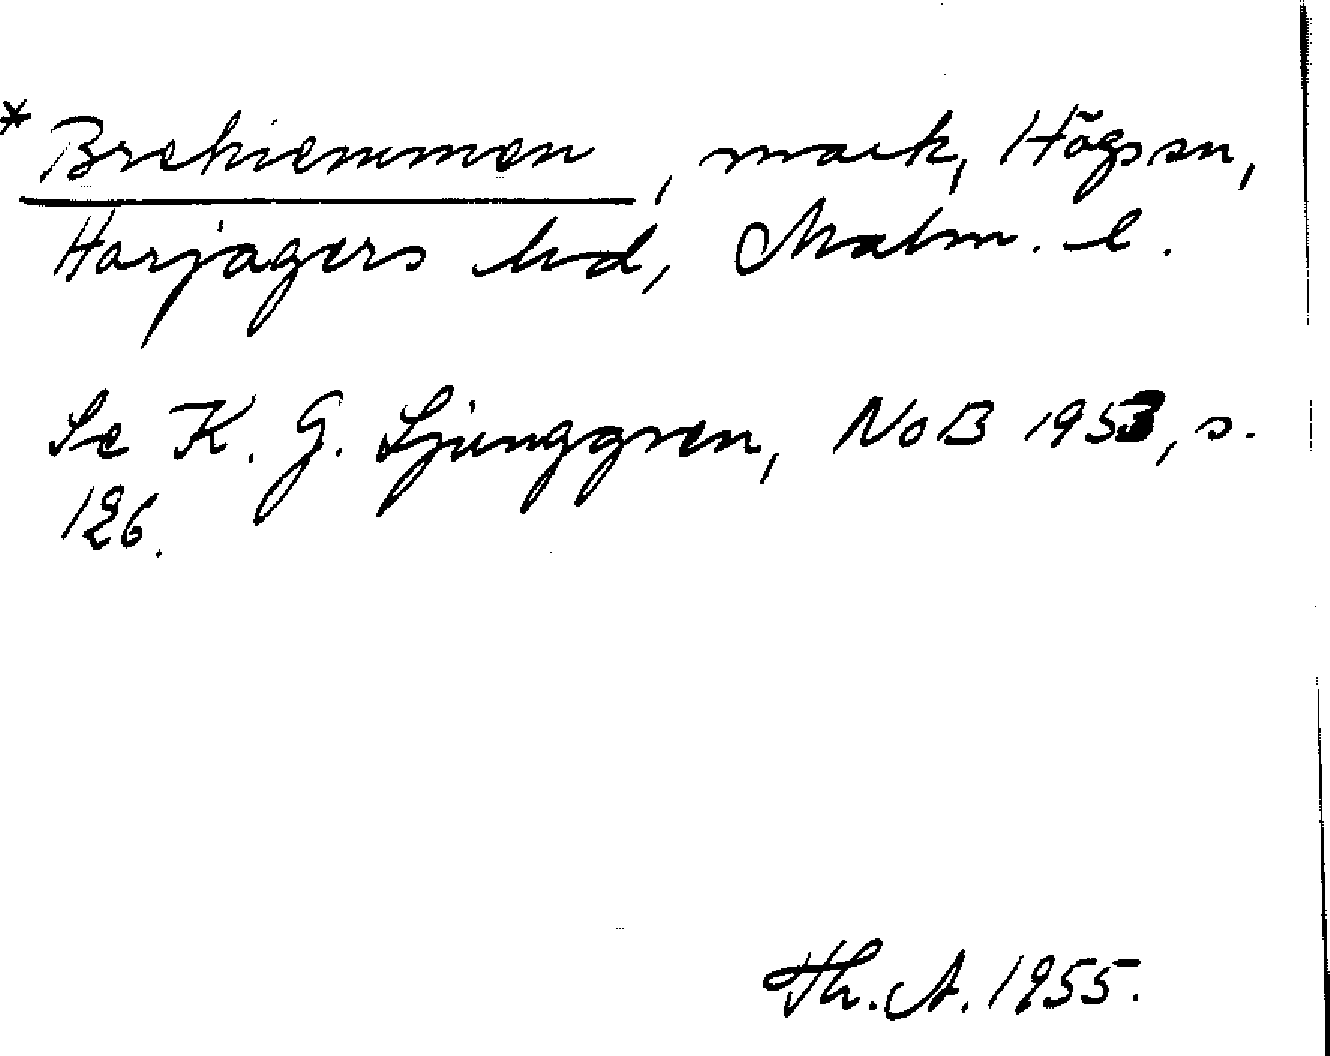 * Brehiemmen, mark, Högs sn,
Harjagers hd, Malm. l.
Se K. G. Ljunggren, NoB 1953, s.
126.
Th. A. 1955.